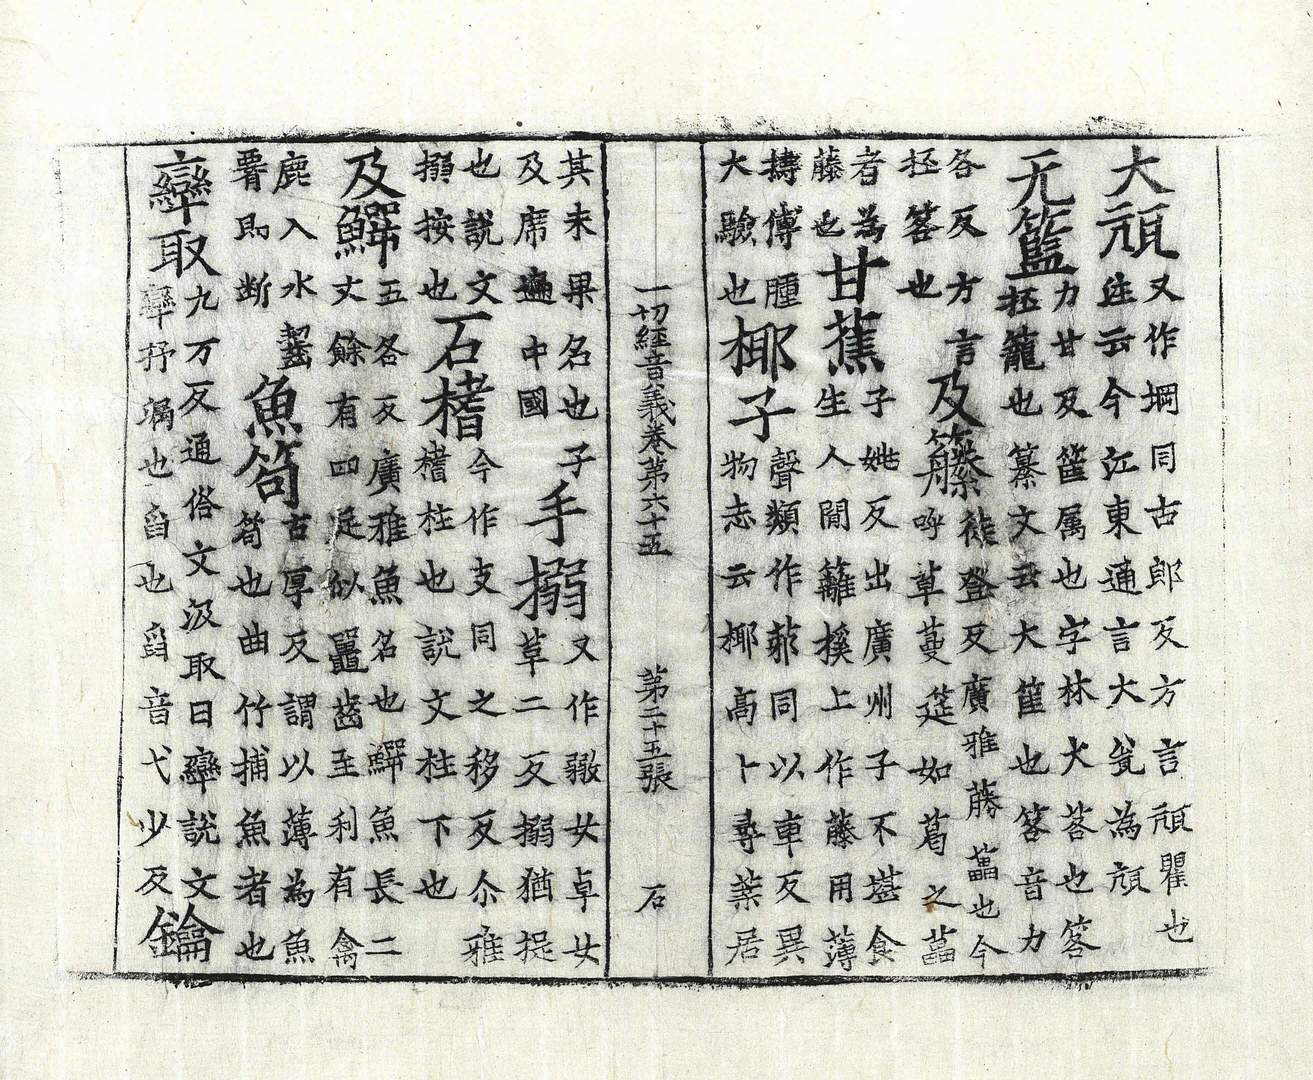 大㼚又作㽘同古郎反方言㼚甖也
注云今江東通言大瓮為㼚
无籃力甘反筐属也字林大笿也笿
抷籠也纂文云大筐也笿音力
各反方言及籐徒登反廣雅藤藟也今
抷笿也呼草蔓莚如葛之藟
者為甘蕉子姚反出廣州子不堪食
藤也生人間籬援上作藤用薄
摶傅腫椰子聲類作𦯄同以車反異
大驗也物志云椰高卜尋葉居
一切經音義卷第六十五 第二十五張 石
其末果名也子手搦又作𢾭女卓女
及席遍中國草二反搦猶捉
也說文石榰今作支同之移反尒雅
搦按也榰柱也說文柱下也
及鱓五各反廣雅魚名也鱓魚長二
丈餘有四足似鼉齒至利有禽
鹿入水齧魚笱古厚反謂以薄為魚
署即断笱也曲竹捕魚者也
㪻取九万反通俗文汲取曰㪻說文
㪻抒漏也舀也舀音弋少反鑰